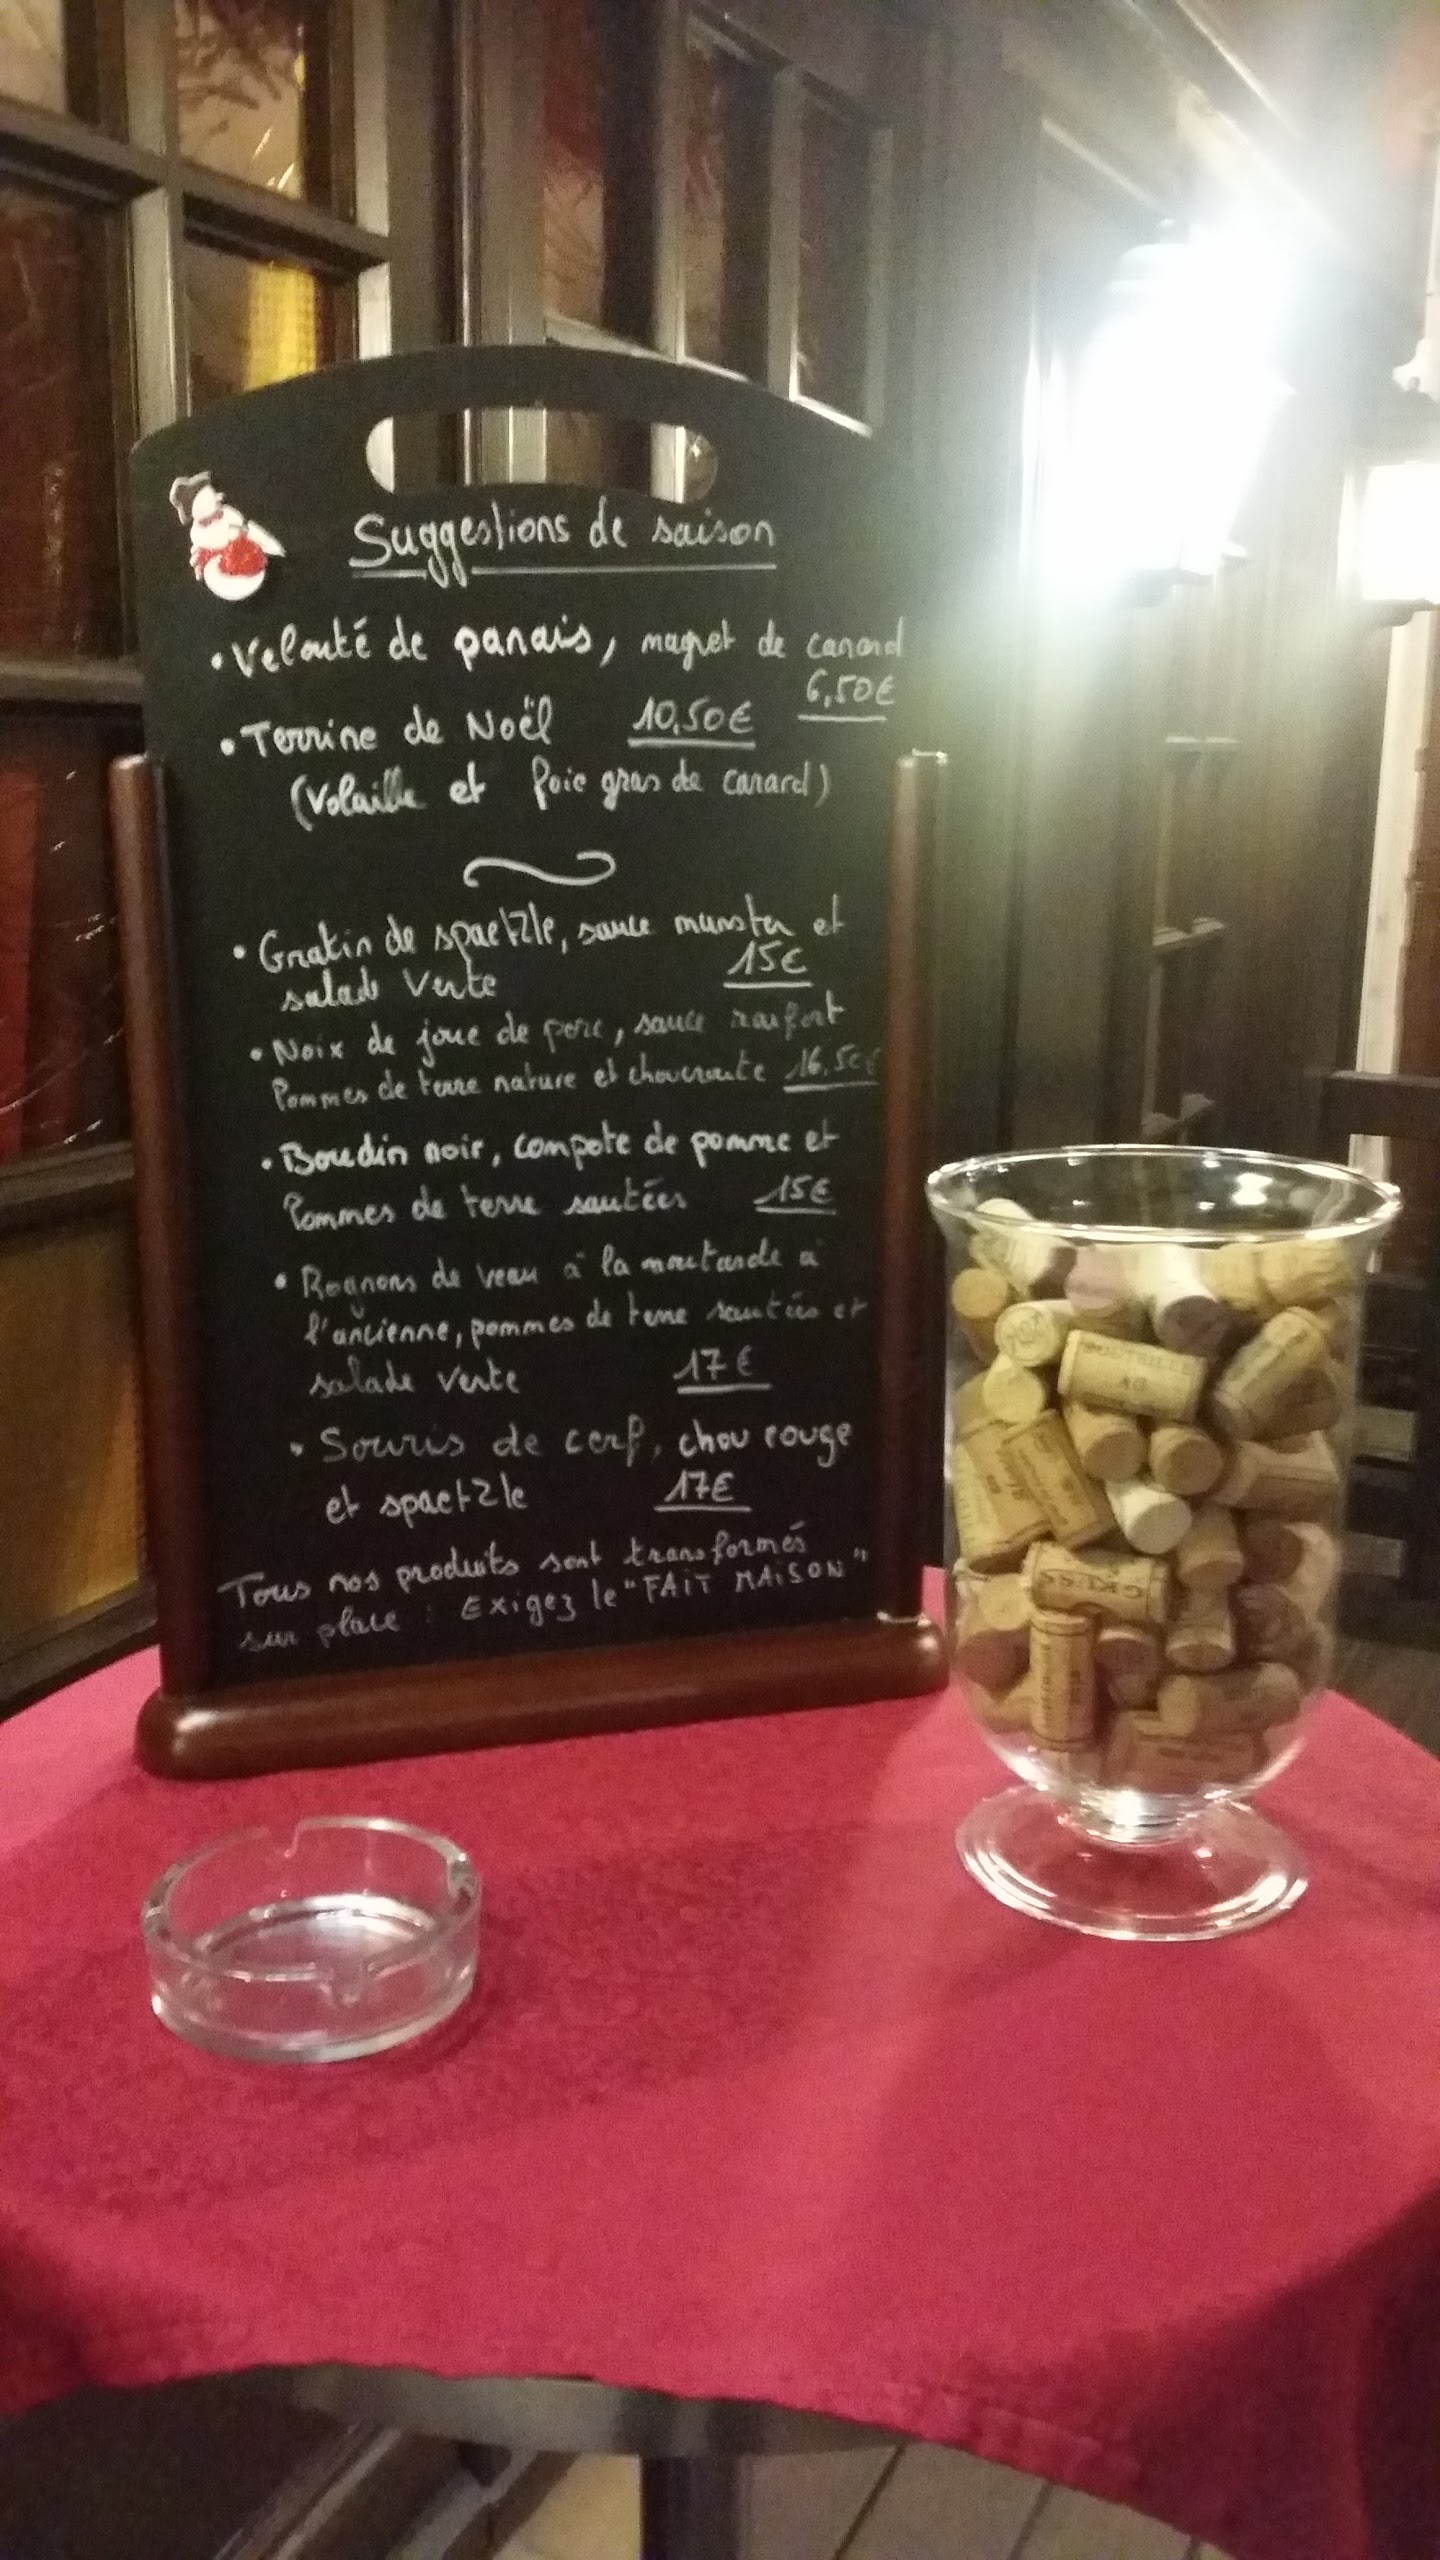 Suggestions de saison
• Velouté de panais, magret de canard
6,50€
• Terrine de Noël 10,50€
(Volaille et foie gras de canard)
• Gratin de spaetzle, sauce munster et
salade verte 15€
• Noix de joue de porc, sauce raifort
Pommes de terre nature et choucroute 16,50€
• Boudin noir, compote de pomme et
Pommes de terre sautées 15€
• Rognons de veau à la moutarde à
l'ancienne, pommes de terre sautées et
salade verte 17€
• Souris de cerf, chou rouge
et spaetzle 17€
Tous nos produits sont transformés
sur place : Exigez le "FAIT MAISON"